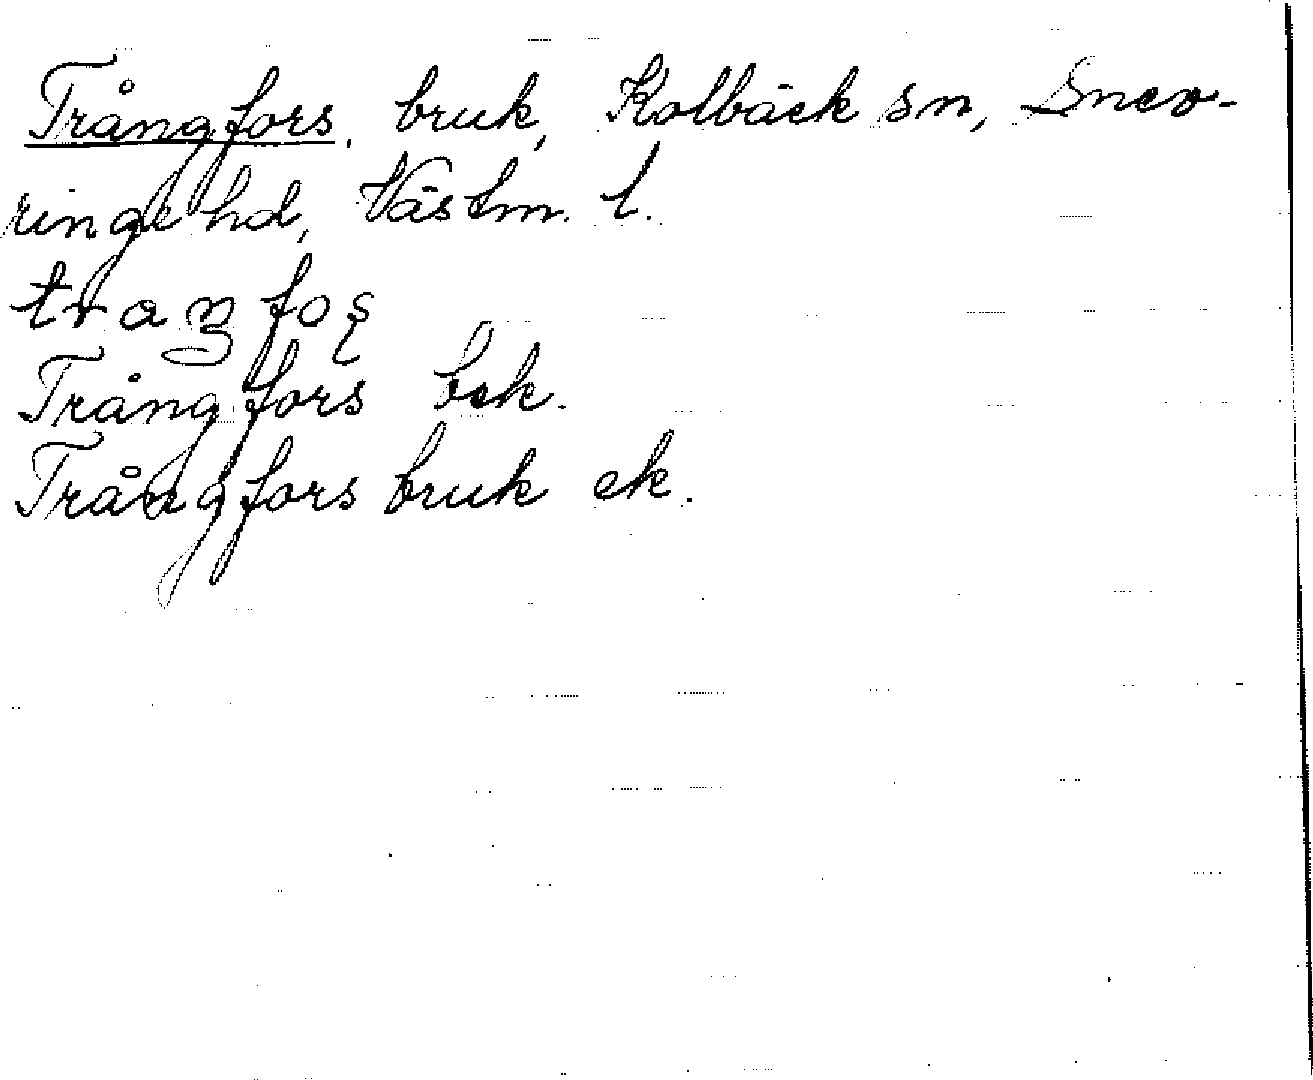 Trångfors, bruk, Kolbäck sn, Snev-
ringe hd, Västm. l.
traŋfoʂ
Trångfors bek.
Trångfors bruk ek.